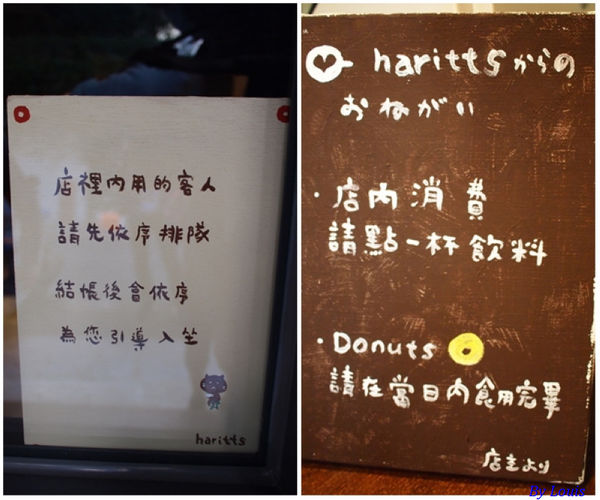 店裡內用的客人
請先依序排隊
結帳後會依序
為您引導入坐
haritts
harittsからの
おねがい
・店內消費
請點一杯飲料
・Donuts
請在當日內食用完畢
店主より
By Louis